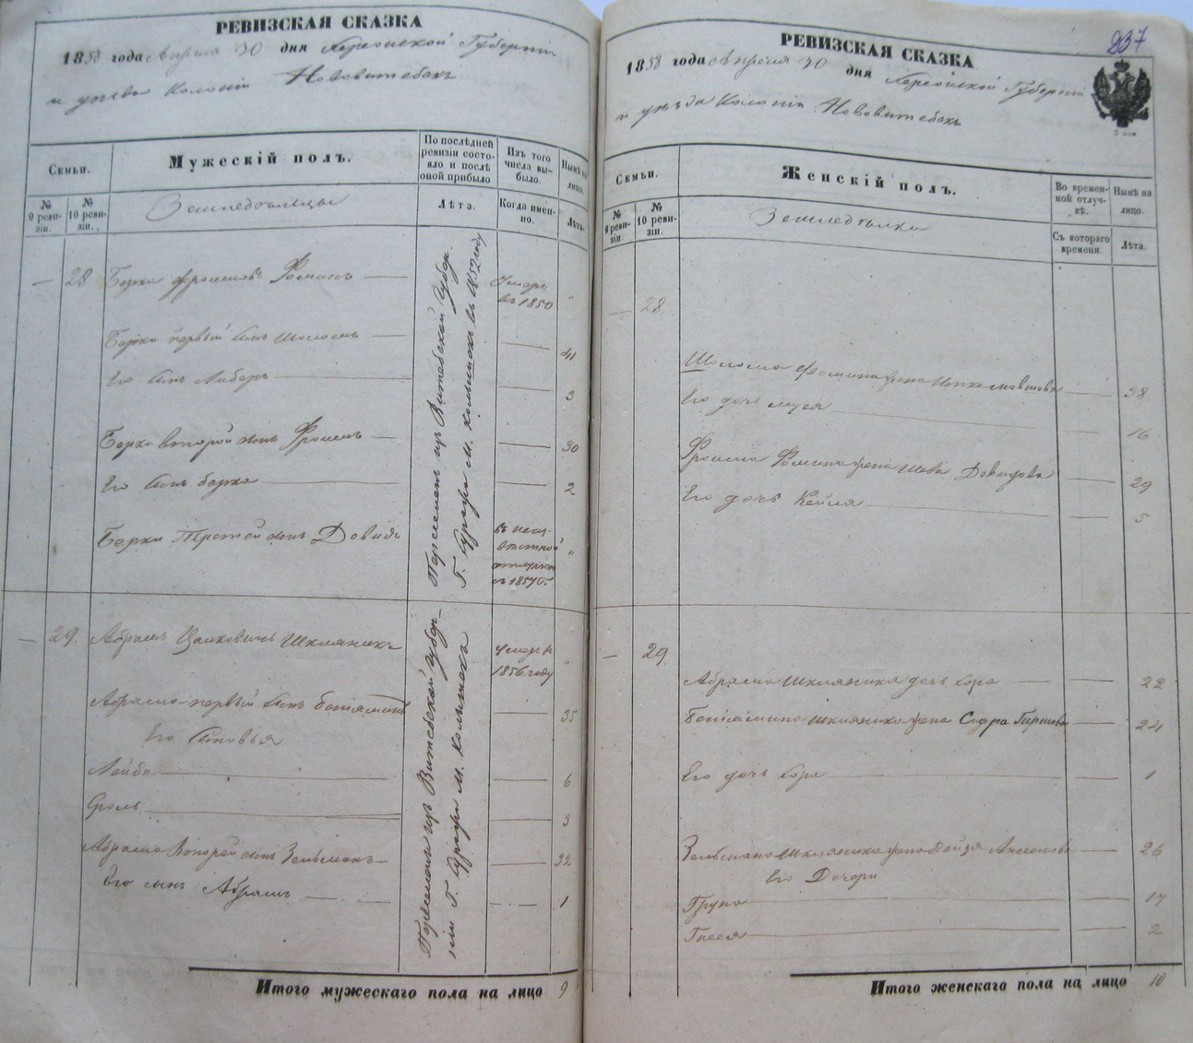 РЕВИЗСКАЯ СКАЗКА
1858 года Апреля 30 дня Херсонской Губерніи
и уѣзда Колоніи Нововитебскъ
Семьи.
Мужескій полъ.
По послѣдней ревизіи состояло и послѣ оной прибыло
Изъ того числа выбыло.
Нынѣ на лицо.
№ 9 ревизіи.
№ 10 ревизіи.
Земледѣльцы
Лѣта.
Когда именно.
Лѣта.
— 28 Берка Фроимов Фоминъ —
Умеръ въ 1850 "
Берки первый сынъ Шоломъ — — 41
Его сынъ Либеръ — — 3
Берки второй сынъ Фроимъ — — 30
Его сынъ Берка — — 2
Берки Третей сынъ Довидъ
въ неизвѣстной отлучкѣ "
Переменъ изъ Витебской Губер.
Г. Суража м. Колышокъ въ 1852 году
— 29. Абрамъ Цалковичъ Шкляникъ
Умеръ 1856 году "
Абрама первый сынъ Беніаминъ — 35
Его сыновья
Лейба — — 6
Сроль — — 3
Абрама Второй сынъ Зельманъ — — 32
Его сынъ Абрамъ — — 1
Витебской Губер-
ніи Г. Суража м. Колышокъ
Итого мужескаго пола на лицо 9
237
РЕВИЗСКАЯ СКАЗКА
1858 года Апреля 30 дня Херсонской Губерніи
и уѣзда Колоніи Нововитебскъ
Семьи.
Женскій полъ.
Во временной отлучкѣ.
Нынѣ на лицо.
№ 9 ревизіи.
№ 10 ревизіи.
Земледѣлки
Съ котораго времени.
Лѣта.
— 28.
Шолома Фомина жена — 38
Его дочь Муся — — 16
Фроима Фомина жена Шева Довидова — 29
Его дочь Кейля — — 5
— 29
Абрама Шкляника дочь Сора — — 22
Беніамина Шкляника жена Сифра Гиршова — 24
Его дочь Сора — — 1
Зельмана Шкляника жена — 26
Его Дочери
Груна — — 17
Гнеся — — 2
Итого женскаго пола на лицо 10